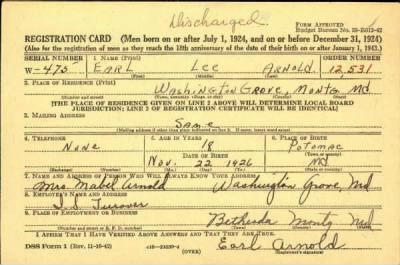 Discharged
FORM APPROVED
REGISTRATION CARD (Men born on or after July 1, 1924, and on or before December 31, 1924)
(Also for the registration of men as they reach the 18th anniversary of the date of their birth on or after January 1, 1943.)
SERIAL NUMBER 1. NAME (Print) ORDER NUMBER
W-475 EARL LEE ARNOLD 12,531
2. PLACE OF RESIDENCE (Print)
WASHINGTON GROVE, MONTG MD.
[THE PLACE OF RESIDENCE GIVEN ON LINE 2 ABOVE WILL DETERMINE LOCAL BOARD
JURISDICTION; LINE 2 OF REGISTRATION CERTIFICATE WILL BE IDENTICAL]
3. MAILING ADDRESS
SAME
[Mailing address if other than place indicated on line 2. If same, insert word same]
4. TELEPHONE 5. AGE IN YEARS 6. PLACE OF BIRTH
NONE 18 POTOMAC
DATE OF BIRTH (Town or county)
NOV. 22 1926 MD
7. NAME AND ADDRESS OF PERSON WHO WILL ALWAYS KNOW YOUR ADDRESS
Mrs. Mabel Arnold Washington Grove, Md
8. EMPLOYER'S NAME AND ADDRESS
I. S. Turover
9. PLACE OF EMPLOYMENT OR BUSINESS
Bethesda Montg Md
I AFFIRM THAT I HAVE VERIFIED ABOVE ANSWERS AND THAT THEY ARE TRUE.
DSS Form 1 (Rev. 11-16-42) (OVER) Earl Arnold
(Registrant's signature)